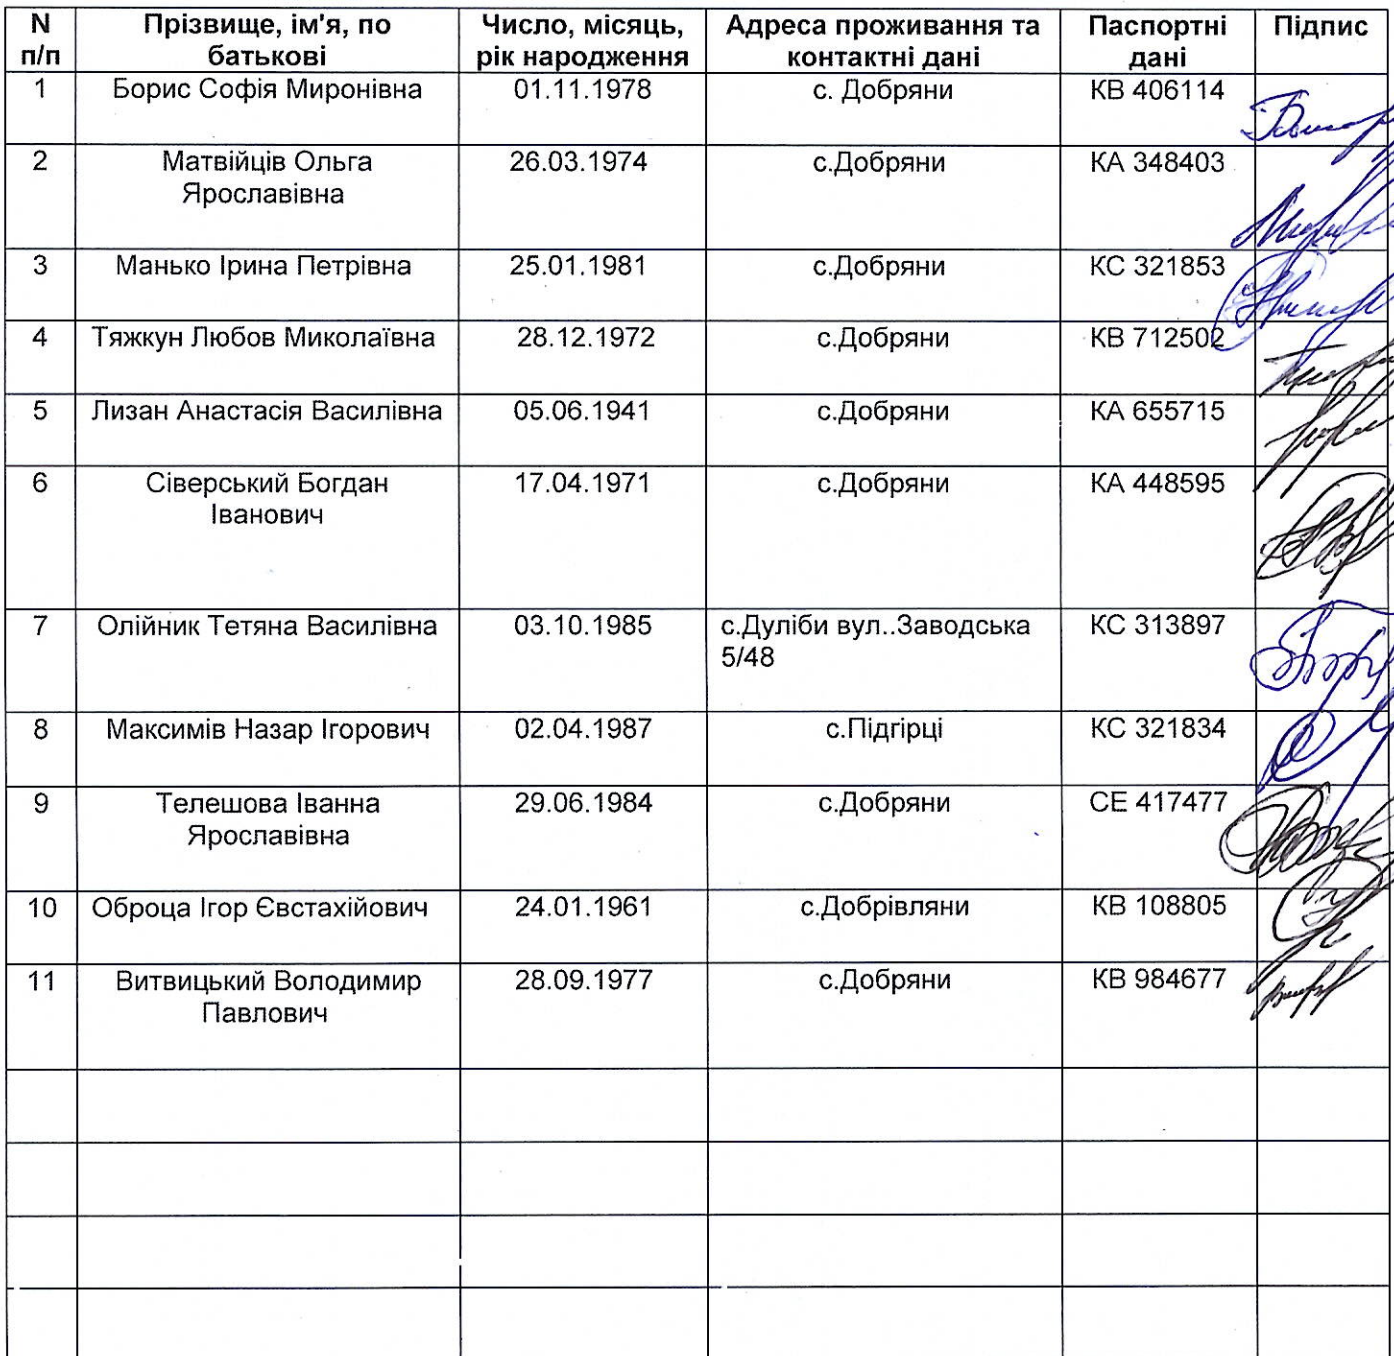 N п/п Прізвище, ім'я, по батькові Число, місяць, рік народження Адреса проживання та контактні дані Паспортні дані Підпис
1 Борис Софія Миронівна 01.11.1978 с. Добряни КВ 406114
2 Матвійців Ольга Ярославівна 26.03.1974 с.Добряни КА 348403
3 Манько Ірина Петрівна 25.01.1981 с.Добряни КС 321853
4 Тяжкун Любов Миколаївна 28.12.1972 с.Добряни КВ 712502
5 Лизан Анастасія Василівна 05.06.1941 с.Добряни КА 655715
6 Сіверський Богдан Іванович 17.04.1971 с.Добряни КА 448595
7 Олійник Тетяна Василівна 03.10.1985 с.Дуліби вул..Заводська 5/48 КС 313897
8 Максимів Назар Ігорович 02.04.1987 с.Підгірці КС 321834
9 Телешова Іванна Ярославівна 29.06.1984 с.Добряни СЕ 417477
10 Оброца Ігор Євстахійович 24.01.1961 с.Добрівляни КВ 108805
11 Витвицький Володимир Павлович 28.09.1977 с.Добряни КВ 984677